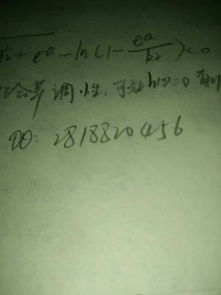 + e^a - ln(1 - e^a/k²) < 0
调性,可知h(x)=0有
QQ: 2818820456